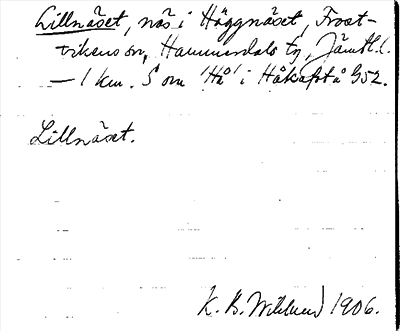 Lillnäset, näs i Häggnäset, Frost-
vikens sn, Hammerdals tg, Jämtl. l.
— 1 km. S om 'Hå' i Håkafot å G52.
Lillnäset.
K. B. Wiklund 1906.